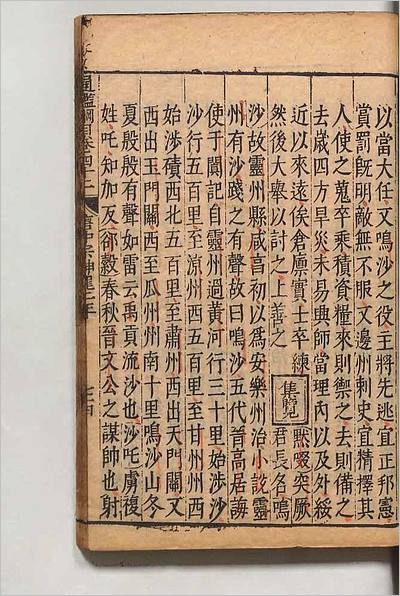 以當大任又鳴沙之役主將先逃宜正邦憲
賞罰旣明敵無不服又邊州刺史宜精擇其
人使之蒐卒乘積資糧來則禦之去則備之
去歲四方旱災未易興師當理內以及外綏
近以來遠俟倉廩實士卒練
然後大舉以討之上善之
集覽
默啜突厥
君長名鳴
沙故靈州縣咸亨初以爲安樂州治小說靈
州有沙踐之有聲故曰鳴沙五代晉高居誨
使于闐記自靈州過黃河行三十里始涉沙
沙行五百里至涼州西五百里至甘州州西
始涉磧西北五百里至肅州西出天門關又
西出玉門關西至瓜州州南十里鳴沙山冬
夏殷殷有聲如雷云禹貢流沙也沙吒虜複
姓吒知加反郤縠春秋晉文公之謀帥也射
通鑑綱目卷四十二
唐中宗神龍二年
七四